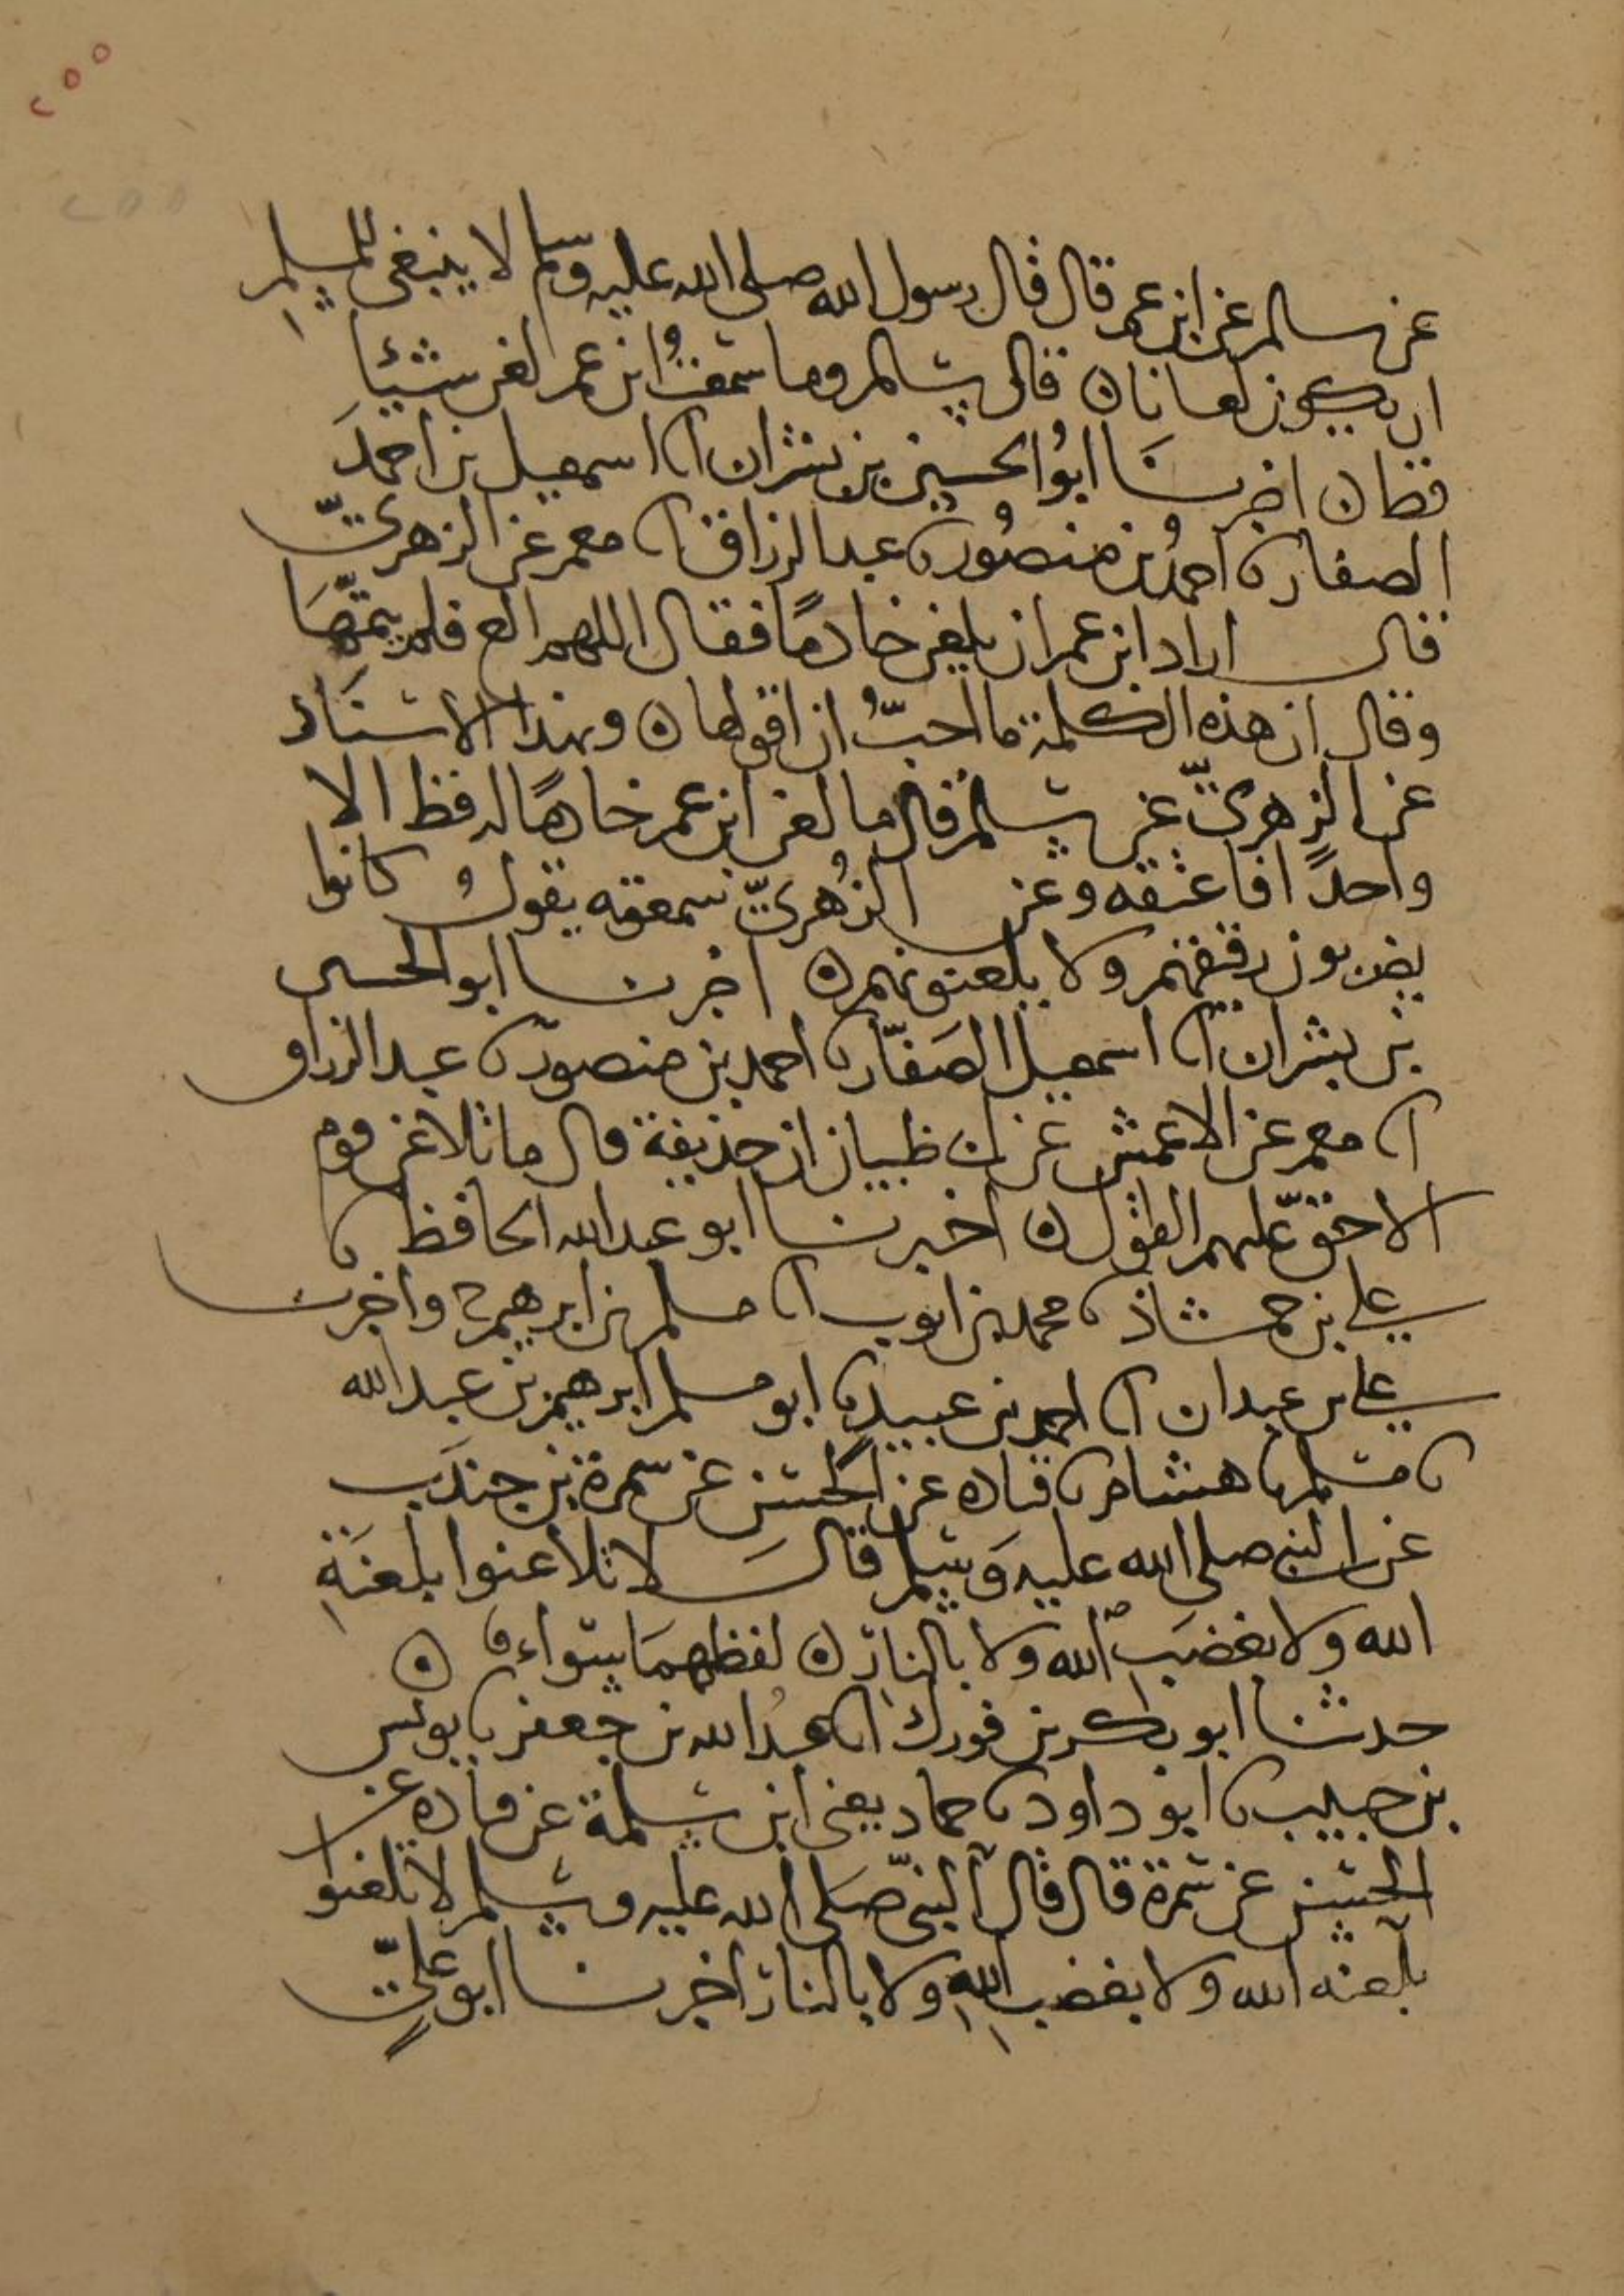 ٢٥٥
٢٥٥
عن سالم عن ابن عمر قال قال رسول الله صلى الله عليه وسلم لا ينبغى للمسلم
ان يكون لعانا ن قال سالم وما سمعتُ ابن عمر لعن شيئا
قط ن اخبرنا ابوُ الحسين بن بشران انا اسمعيل بن احمدَ
الصفار نا احمدُ بن منصوُر نا عبد الرزاق انا معمر عن الزهريّ
قال اراد ابن عمر ان يلعن خادمًا فقال اللهم الع فلم يتمّهَا
وقال ان هذه الكلمة ما احبّ ان اقولها ن وبهذا الاسنَاد
عن الزهريّ عن سالم قال ما لعن ابن عمر خادمًا له قط الا
واحدًا فاعتقه وعن الزُهريّ سمعته يقولُ كانوا
يضربون رقيقهم ولا يلعنونهم ن اخبرنا ابو الحسين
بن بشران انا اسمعيل الصَفّار نا احمد بن منصور نا عبد الرزاق
انا معمر عن الاعمش عن ابى ظبيان ان حذيفة قال ما تلاعن قوم
الا حقّ عليهم القول ن اخبرنا ابو عبد الله الحافظ نا
على بن حمشاذ نا محمد بن ايوب انا مسلم بن ابرهيم ح واخبرنا
على بن عبدان انا احمد بن عبيد نا ابو مسلم ابرهيم بن عبد الله
نا مسلم نا هشام نا قتاده عن الحسن عن سمرة بن جندَب
عن النبى صلى الله عليه وَسلم قالَ لا تلاعنوا بلعنَةِ
الله ولا بغضَب الله ولا بالنار ن لفظهمَا سَواء ن
حدثنا ابو بكر بن فورك انا عبدُ الله بن جعفر نا يونس
بن حبيب نا ابو داود نا حماد يعنى ابن سلمة عن قتاده عن
الحسن عن سمرة قال قال النبيّ صَلى الله عليه وسلم لا تلعنوا
بلعنه الله ولا بغضب اللهِ ولا بالنار اخبرنا ابو عليٍّ